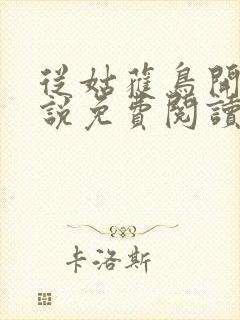 從姑獲鳥開
說免費閱讀
卡洛斯